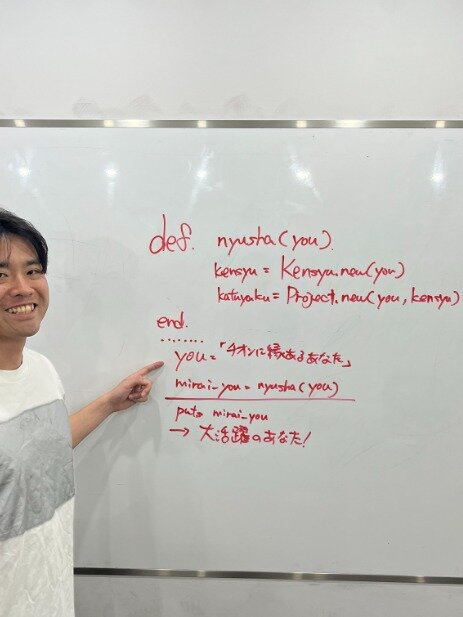 def. nyusha(you).
kensyu = Kensyu.new(you)
katuyaku = Project.new(you, kensyu)
end.
........
you = 「チオンに縁あるあなた」
mirai_you = nyusha(you)
puts mirai_you
→ 大活躍のあなた!